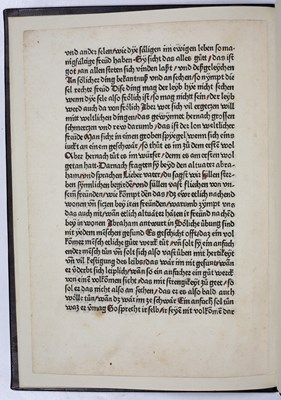 vnd ander selen / wie dye säligen im ewigen leben so ma
nigfältige freüd haben Sy sicht das alles gůt / das ist
got an allen steten sich vinden laßt / vnd deßgeleychen
An sölicher ding bekantnuß vnd an sehen / so nympt die
sel rechte freüd Dise ding mag der leyb hye nicht sehen
wenn dye sele also frölich ist / so mag nicht sein / der leyb
werd auch da von frölich Aber wer sich vil ergetzen will
mit weltlichen dingen / das gewynnet hernach grossen
schmertzen vnd rew darumb / das ist der lon weltlicher
freüde Man sicht in einen groben spyegel wenn sich eins
iuckt an einem geschwär / so thůt es im zů dem ersten wol
Aber hernach tůt es im wirser / denn es am ersten wol
getan hatt Darnach fragten sy bey den altuater abra
ham / vnd sprachen Lieber vater / du sagst wir süllen ster-
ben hymlischen begirden / vnd süllen vast fliehen von vn
sern freünden / wie kompt den das / dz eüer etlich nachend
wonen vn sizen bey iren freünden / warumb zympt vns
das auch nit / wann etlich altuäter haben ir freünd nachend
by in wonen Abraham antwurt in Söliche übung sind
mit yedem menschen gesund Es geschicht offt / das ein vol
komer mensch etliche gůte werck tůt / vn solt sy ein ander
mensch tůn vn solt sich also vast üben mit hertikeyt
vn vil kestigung des leibs / das wär im mit gesunt / wan
er verderbt sich leiplich / wan so ein ansicher ein gůt werck
von einem volkomen sicht / das mit strengikeyt zů geet / so
sol er das nicht also an sehen / das er es also bald auch
wölle tůn / wan dz wär im ze schwär Ein ansich sol tůn
was er vermag